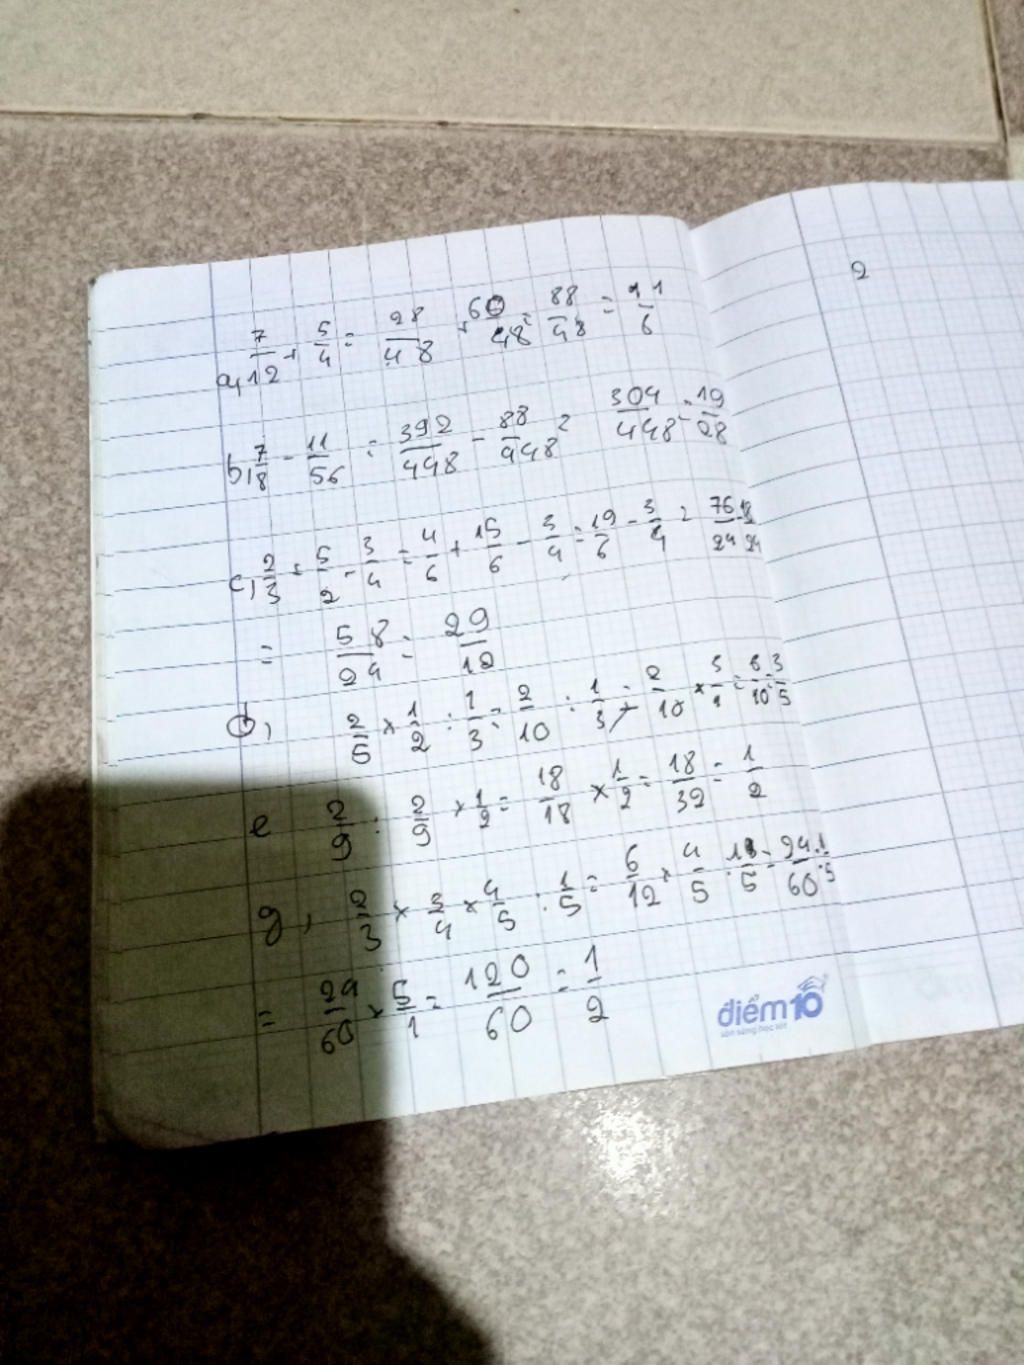 2
a, 7/12 + 5/4 = 28/48 + 60/48 = 88/48 = 11/6
b, 7/8 - 11/56 = 392/448 - 88/448 = 304/448 = 19/28
c, 2/3 + 5/2 - 3/4 = 4/6 + 15/6 - 3/4 = 19/6 - 3/4 = 76/24 - 18/24
= 58/24 = 29/12
d, 2/5 × 1/2 : 1/3 = 2/10 : 1/3 = 2/10 × 3/1 = 6/10 = 3/5
e 2/9 : 2/9 × 1/2 = 18/18 × 1/2 = 18/32 = 1/2
g, 2/3 × 3/4 × 4/5 : 1/5 = 6/12 × 4/5 : 1/5 = 24/60 : 1/5
= 24/60 × 5/1 = 120/60 = 1/2
điểm 10